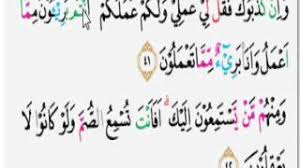 وَاِنْ كَذَّبُوْكَ فَقُلْ لِّيْ عَمَلِيْ وَلَكُمْ عَمَلُكُمْ اَنْتُمْ بَرِيْۤـُٔوْنَ مِمَّاۤ
اَعْمَلُ وَاَنَا۠ بَرِيْۤءٌ مِّمَّا تَعْمَلُوْنَ ٤١
وَمِنْهُمْ مَّنْ يَّسْتَمِعُوْنَ اِلَيْكَ ۗ اَفَاَنْتَ تُسْمِعُ الصُّمَّ وَلَوْ كَانُوْا لَا
يَعْقِلُوْنَ ٤٢